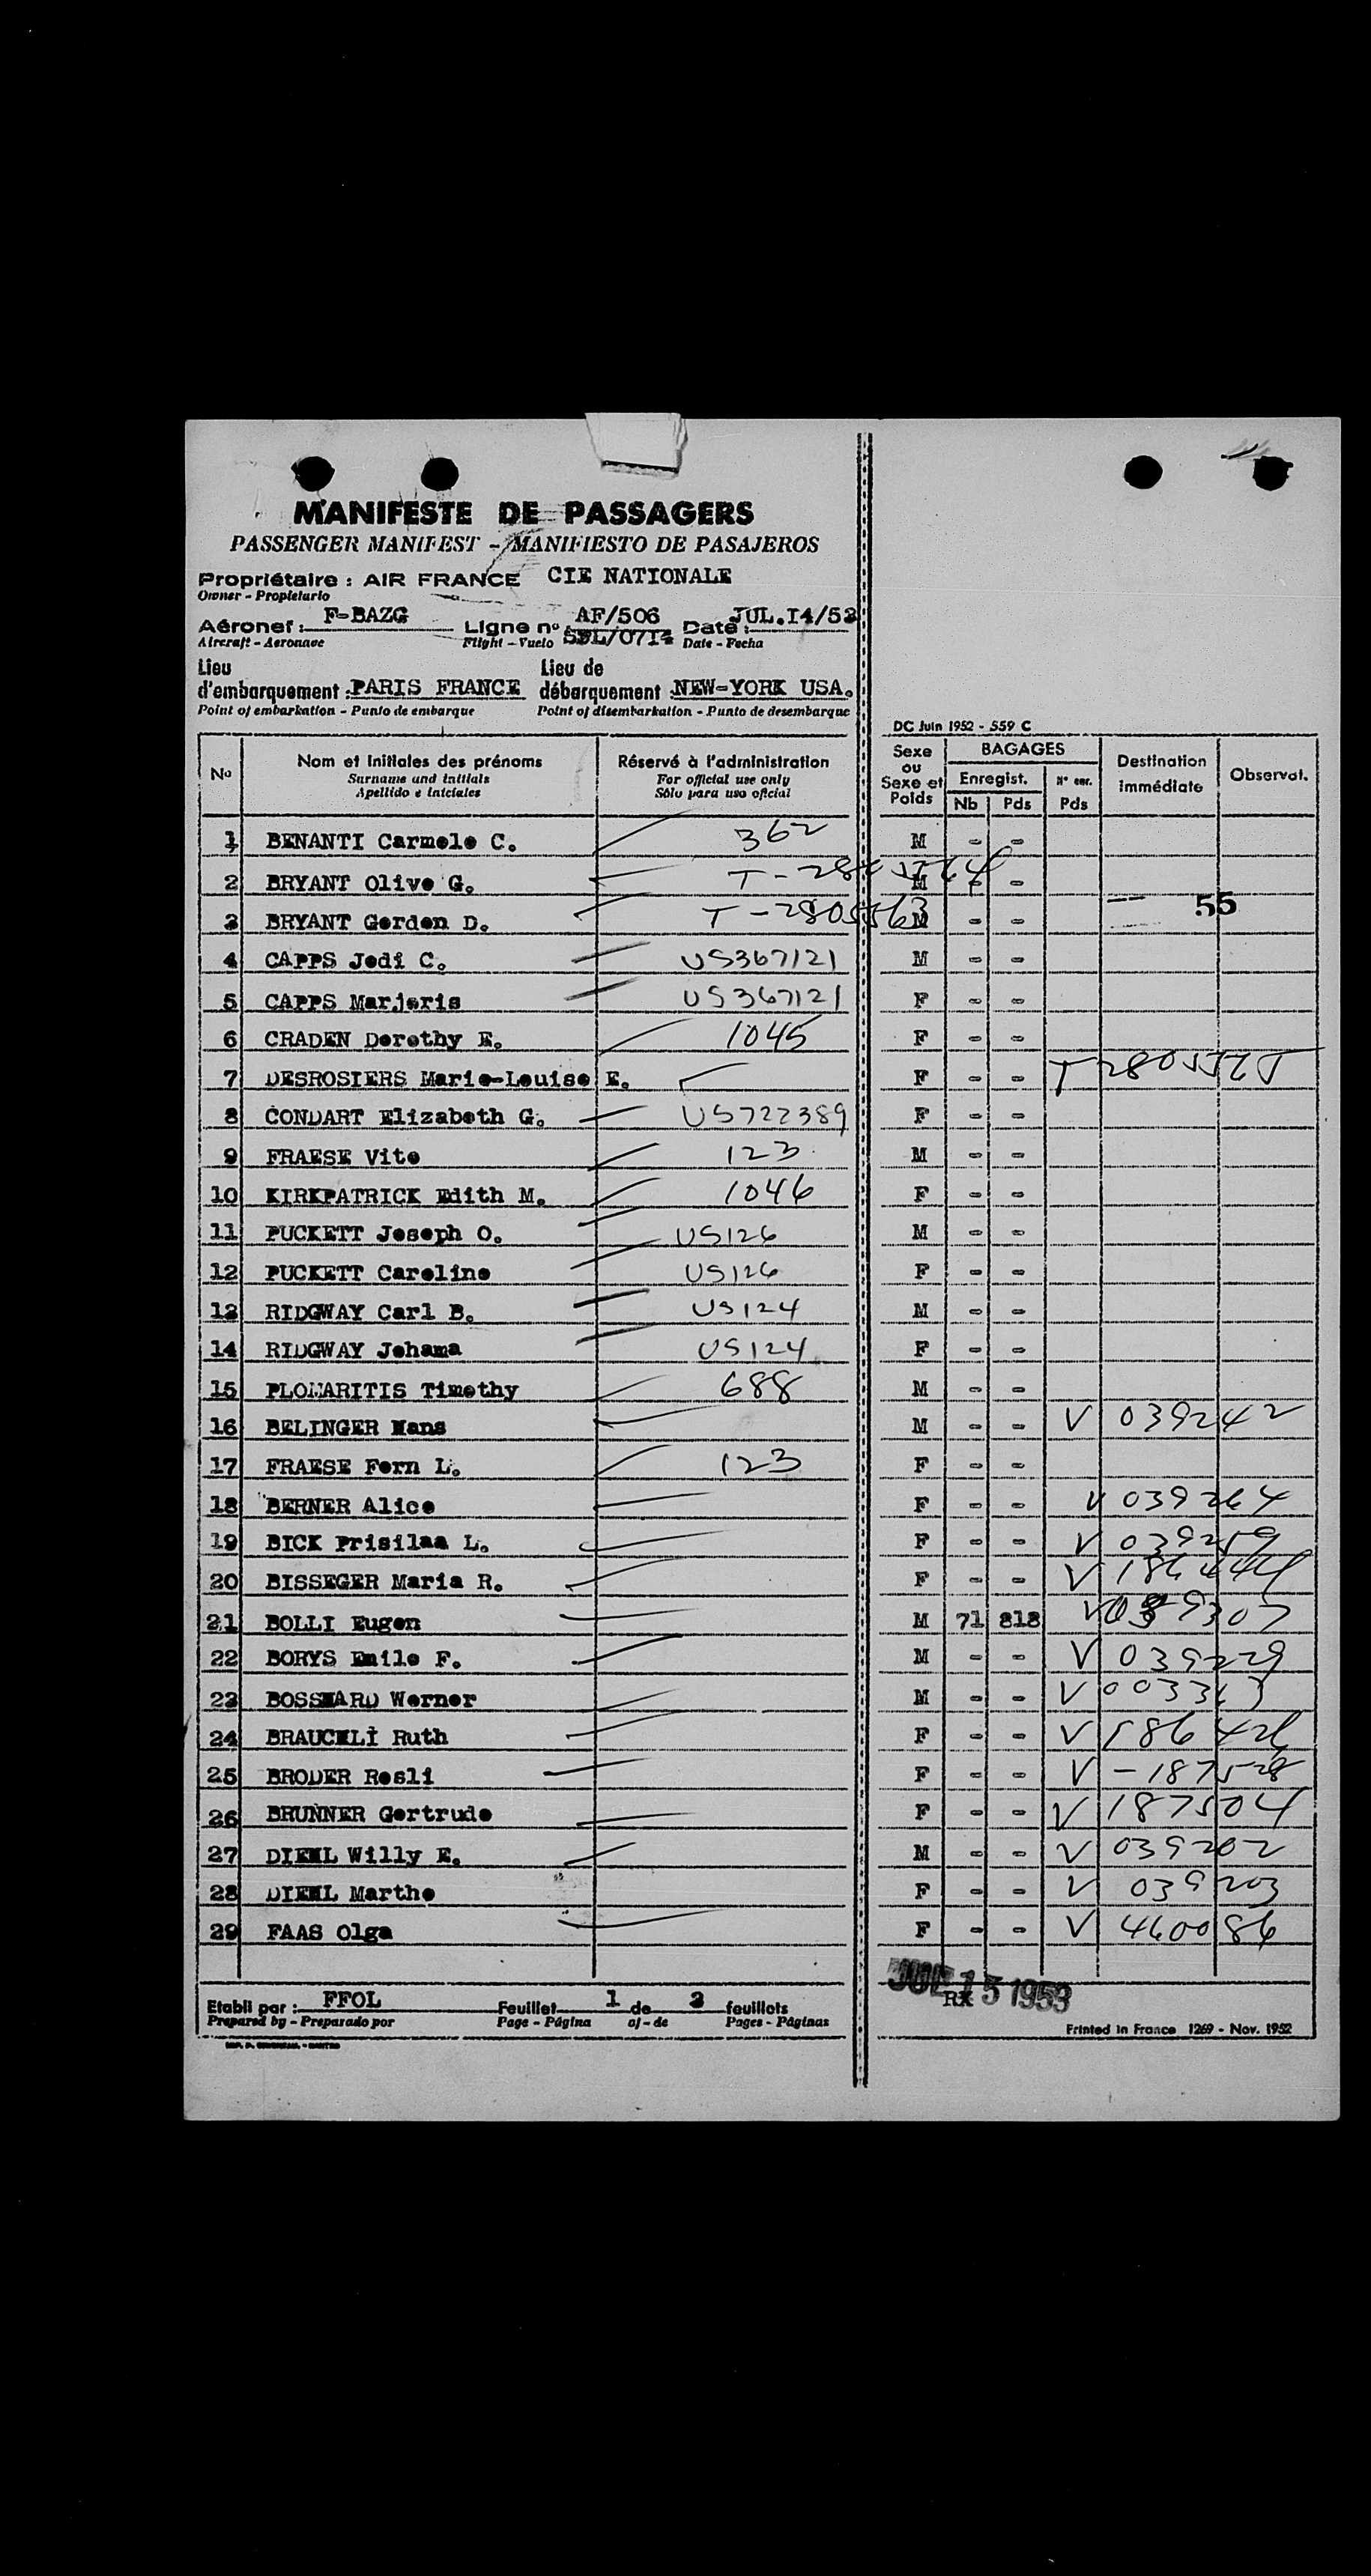 MANIFESTE DE PASSAGERS
PASSENGER MANIFEST - MANIFIESTO DE PASAJEROS
Propriétaire : AIR FRANCE CIE NATIONALE
Owner - Propietario
Aéronef : F-BAZG Ligne n° AF/506 Date : JUL.I4/53
Aircraft - Aeronave Flight - Vuelo Date - Fecha
Lieu d'embarquement : PARIS FRANCE Lieu de débarquement : NEW-YORK USA.
Point of embarkation - Punto de embarque Point of disembarkation - Punto de desembarque
DC Juin 1952 - 559 C
N° Nom et Initiales des prénoms Réservé à l'administration Sexe ou Sexe et Poids BAGAGES Destination immédiate Observat.
Surname and initials For official use only Enregist. N° enr.
Apellido e iniciales Sólo para uso oficial Nb Pds Pds
1 BENANTI Carmelo C. 362 M - -
2 BRYANT Olive G. T-2805564 M - -
55
3 BRYANT Gordon D. T-2805563 M - -
4 CAPPS Jodi C. US367121 M - -
5 CAPPS Marjoris US367121 F - -
6 CRADEN Dorothy E. 1045 F - -
7 DESROSIERS Marie-Louise E. F - - T 2805565
8 CONDART Elizabeth G. US722389 F - -
9 FRAESE Vito 123 M - -
10 KIRKPATRICK Edith M. 1046 F - -
11 PUCKETT Joseph O. US126 M - -
12 PUCKETT Caroline US126 F - -
13 RIDGWAY Carl B. US124 M - -
14 RIDGWAY Johama US124 F - -
15 PLOMARITIS Timothy 688 M - -
16 BELINGER Hans M - - V 039242
17 FRAESE Fern L. 123 F - -
18 BERNER Alice F - - V 039264
19 BICK Prisilaa L. F - - V 039259
20 BISSEGER Maria R. F - - V 186444
21 BOLLI Eugen M 71 818 V 039307
22 BORYS Emile F. M - - V 039229
23 BOSSHARD Werner M - - V 003363
24 BRAUCHLI Ruth F - - V 186426
25 BRODER Rosli F - - V - 187528
26 BRUNNER Gertrude F - - V 187504
27 DIEHL Willy E. M - - V 039202
28 DIEHL Marthe F - - V 039203
29 FAAS Olga F - - V 460086
JUL 15 1953
RX
Etabli par : FFOL Feuillet 1 de 3 feuillets
Prepared by - Preparado por Page - Página of - de Pages - Páginas
Printed in France 1269 - Nov. 1952